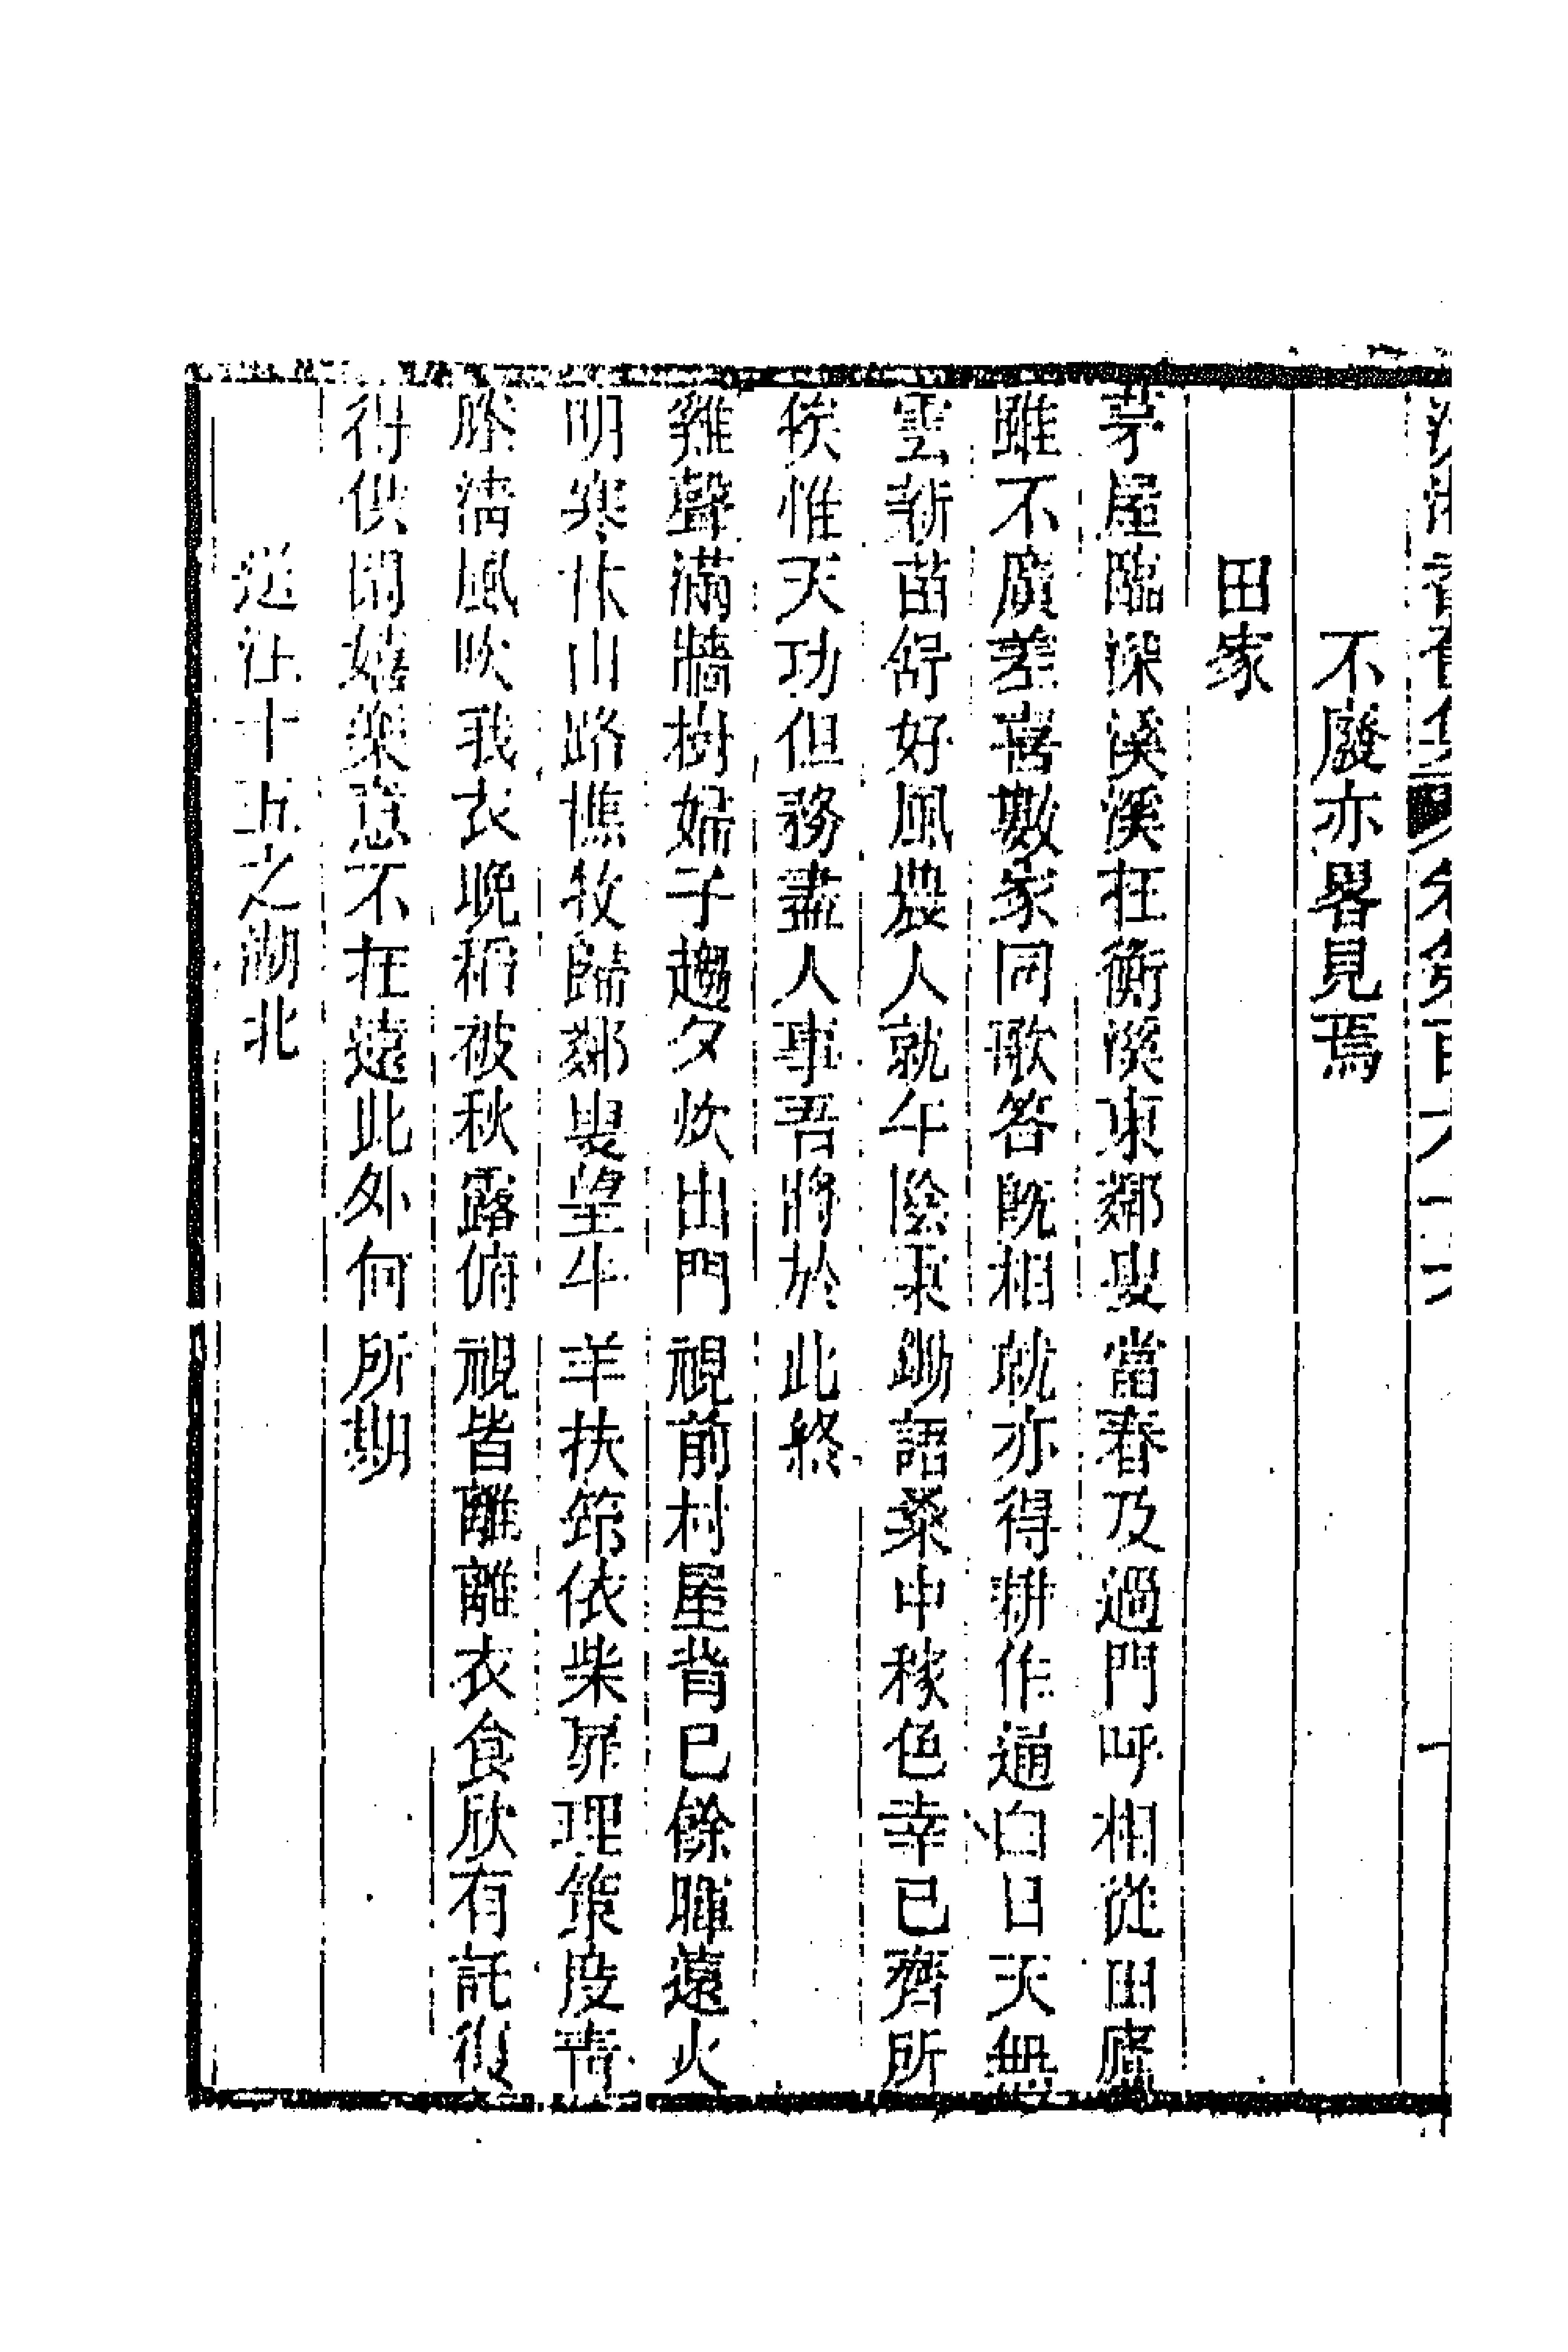 不廢亦畧見焉
田家
茅屋臨深溪溪在衡溪東鄰叟當春及過門呼相從田廬
雖不廣差喜數家同歌答旣相就亦得耕作通白日天無
雲新苗舒好風農人就午陰秉鋤語桑中稼色幸已齊所
俟惟天功但務盡人事吾將於此終
雞聲滿牆樹婦子趨夕炊出門視前村屋背已餘暉遠火
明寒林山路樵牧歸鄰叟望牛羊扶筇依柴扉理策度青
塍清風吹我衣晚稻被秋露俯視皆離離衣食欣有託復
得供閒嬉樂意不在遠此外何所期
送汪十五之湖北